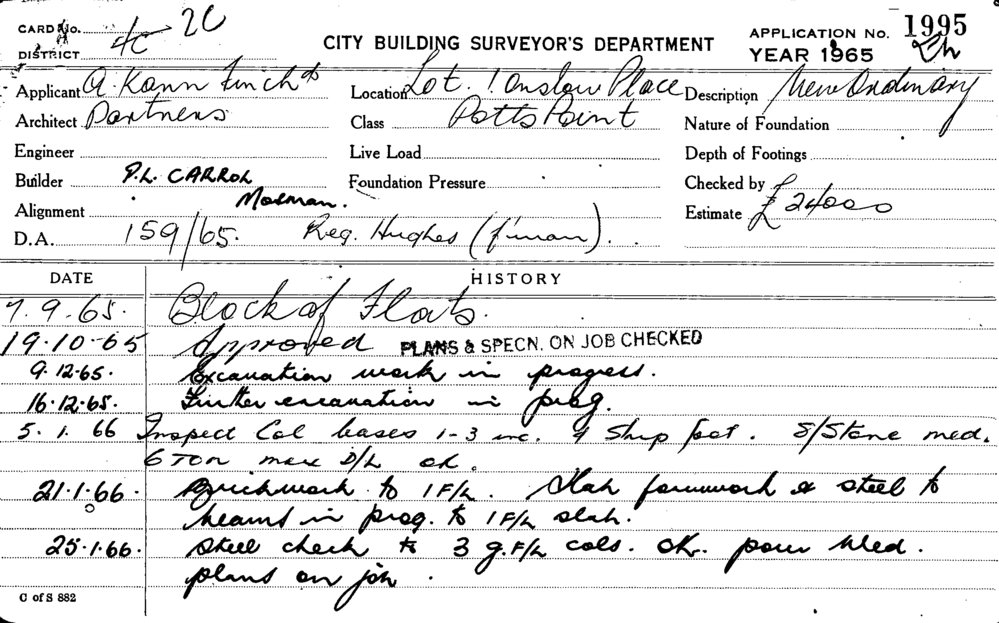 CARD No. 4C 2C
DISTRICT
CITY BUILDING SURVEYOR'S DEPARTMENT
APPLICATION No. 1995
YEAR 1965
Applicant A. Kann Finch &
Location Lot. 1 Onslow Place
Description New Ordinary
Architect Partners
Class Potts Point
Nature of Foundation
Engineer
Live Load
Depth of Footings
Builder P.L. CARROL
Mosman.
Foundation Pressure
Checked by
Alignment
Estimate £24000
D.A. 159/65. Reg. Hughes (f'man).
DATE HISTORY
7.9.65. Block of Flats.
19.10.65 Approved PLANS & SPECN. ON JOB CHECKED
9.12.65. Excavation work in progress.
16.12.65. Further excavation in prog.
5.1.66 Inspect Col bases 1-3 inc. & Strip foot. S/Stone med.
6 Ton max D/L ok.
21.1.66. Brickwork to 1 F/L. Slab formwork & steel to
beams in prog. to 1 F/L slab.
25.1.66. Steel check to 3 g.F/L cols. OK. pour Wed.
plans on job.
C of S 882